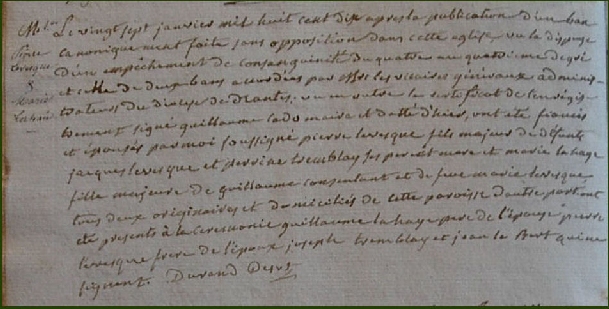 Le vingt sept janvier mil huit cent dix apres la publication d'un ban
canoniquement faite sans opposition dans cette eglise vu la dispense
d'un empêchement de consanguinité du quatre au quatrieme degré
et celle de deux bans accordées par Mrs les vicaires généraux adminis-
trateurs du diocese de nantes, vu en outre le certificat de l'enrégis-
trement signé guillaume cado maire et datté d'hier, ont été fiancés
et épousés par moi soussigné pierre levesque fils majeur de défunts
jacques levesque et perrine tremblay ses per et mere et marie lahaye
fille majeure de guillaume consentant et de feue marie levesque
tous deux originaires et domiciliés de cette paroisse d'autre part ont
été presents à la ceremonie guillaume la haye pere de l'épouse pierre
levesque frere de l'époux joseph tremblay et jean le Bert qui ne
signent. Durand
Pierre
Levesque
&
marie